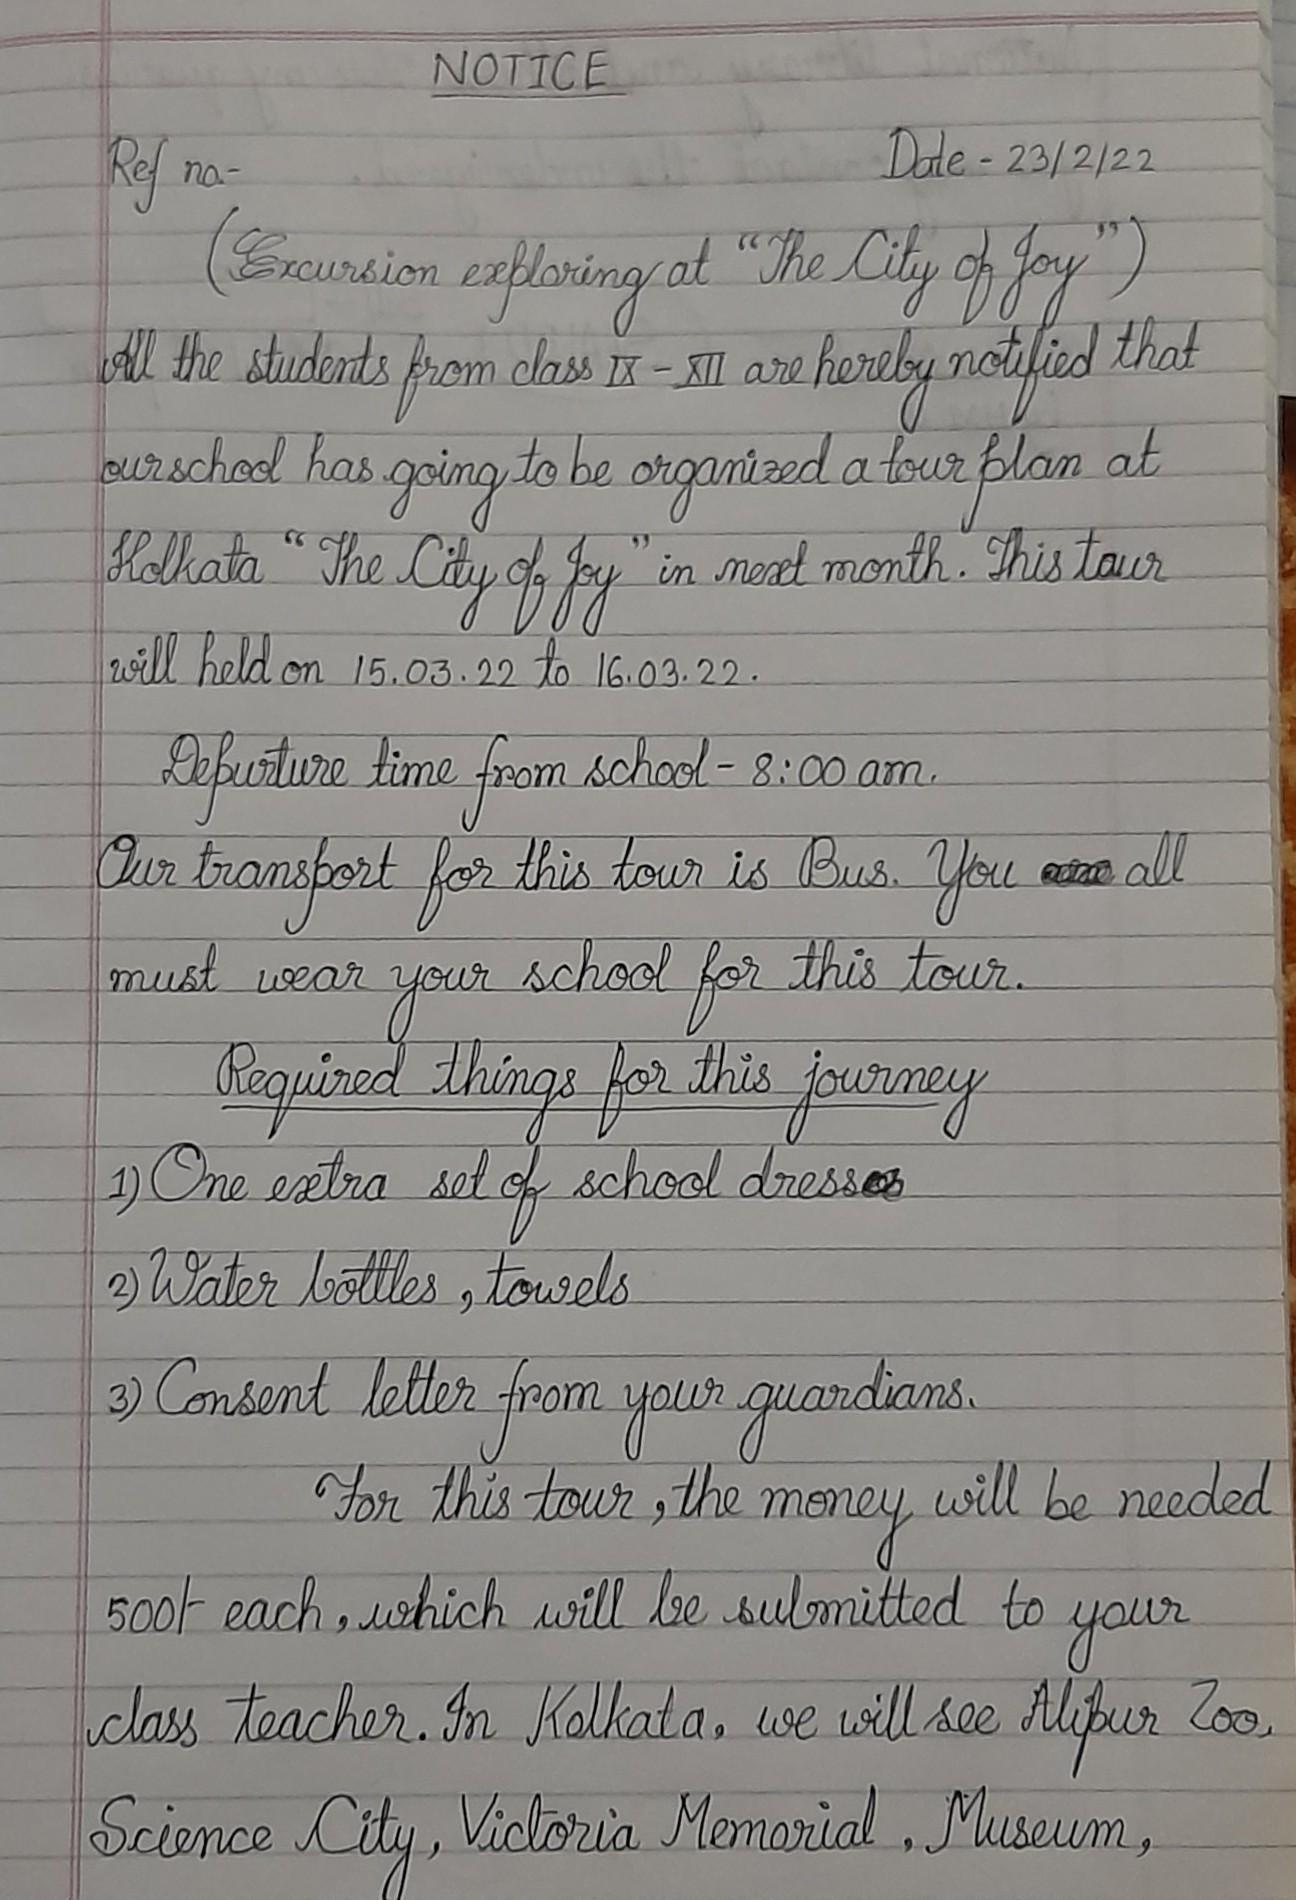 NOTICE
Ref no-
Date - 23/2/22
(Excursion exploring at "The City of Joy")
All the students from class IX - XII are hereby notified that
our school has going to be organized a tour plan at
Kolkata "The City of Joy" in next month. This tour
will held on 15.03.22 to 16.03.22.
Departure time from school - 8:00 am.
Our transport for this tour is Bus. You all
must wear your school for this tour.
Required things for this journey
1) One extra set of school dress
2) Water bottles, towels
3) Consent letter from your guardians.
For this tour, the money will be needed
500/- each, which will be submitted to your
class teacher. In Kolkata, we will see Alipur Zoo,
Science City, Victoria Memorial, Museum,